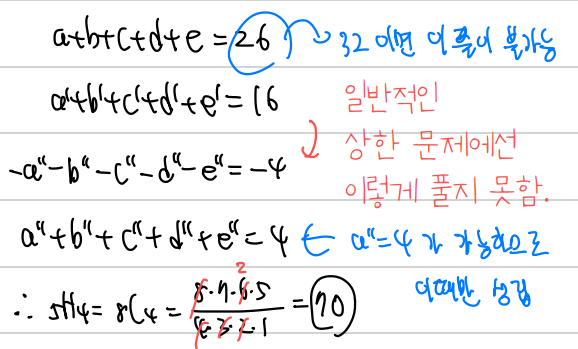 a+b+c+d+e = 26 → 32 이면 이 풀이 불가능
a'+b'+c'+d'+e' = 16
일반적인
상한 문제에선
이렇게 풀지 못함.
-a"-b"-c"-d"-e" = -4
a"+b"+c"+d"+e" = 4 ← a"=4 가 가능하므로
이때만 성립
∴ 5H4 = 8C4 = 8·7·6·5 / 4·3·2·1 = 70
2